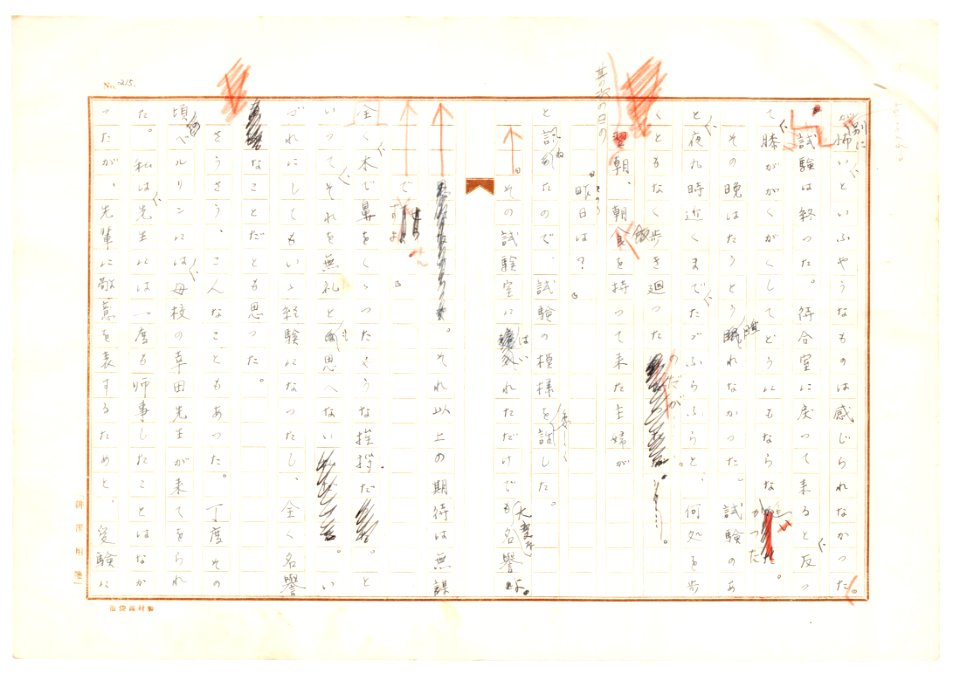 No. 215.
が怖いといふやうなものは感じられなかった。
別に
試験は終った。待合室に戻って来ると反っ
て膝ががくがくしてどうにもならなかった。
その晩はたうとう眠れなかった。試験のあ
と夜九時近くまでたゞふらふらと、何処を歩
くともなく歩き廻った
のだが
其の次の日の
翌朝、朝食を持って来た主婦が
昨日は?
と訊ねたので、試験の模様を話した。
その試験室にはいれただけでも大変な名誉
ですよ。
それ以上の期待は無謀
全く木で鼻をくゝったやうな挨拶だ。と
いって、それを無礼と思へない。い
づれにしてもいゝ経験になったし、全く名誉
なことだとも思った。
さうさう、こんなこともあった。丁度その
頃ベルリンには母校の幸田先生が来てをられ
た。私は先生には一度も師事したことはなか
ったが、先輩に敬意を表するためと、受験に